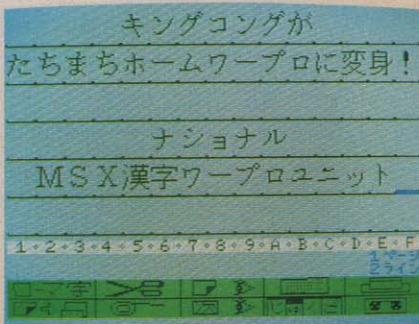 キングコングが
たちまちホームワープロに変身！
ナショナル
MSX漢字ワープロユニット
1・2・3・4・5・6・7・8・9・A・B・C・D・E・F
1ページ
2ライン